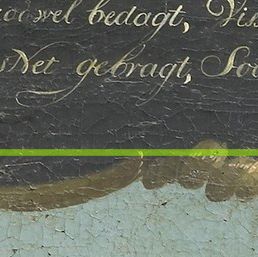 wel bedagt, Vis
Net gebragt, Soo